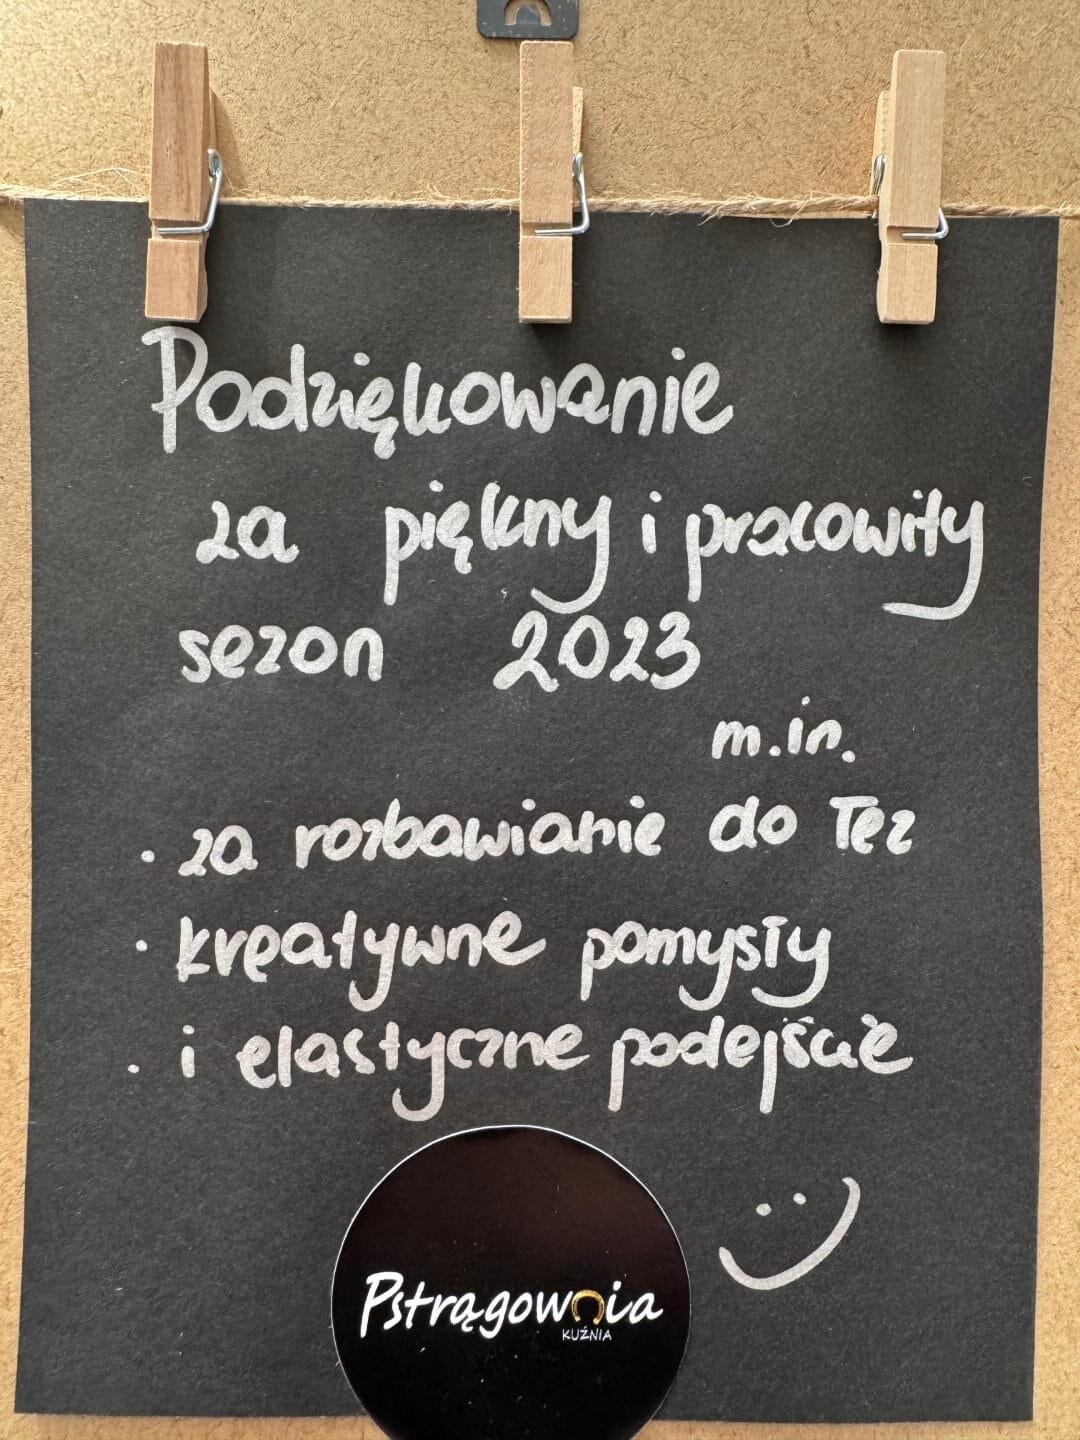 Podziękowanie
za piękny i pracowity
sezon 2023
m.in.
· za rozbawianie do łez
· kreatywne pomysły
· i elastyczne podejście
Pstrągownia
KUŹNIA